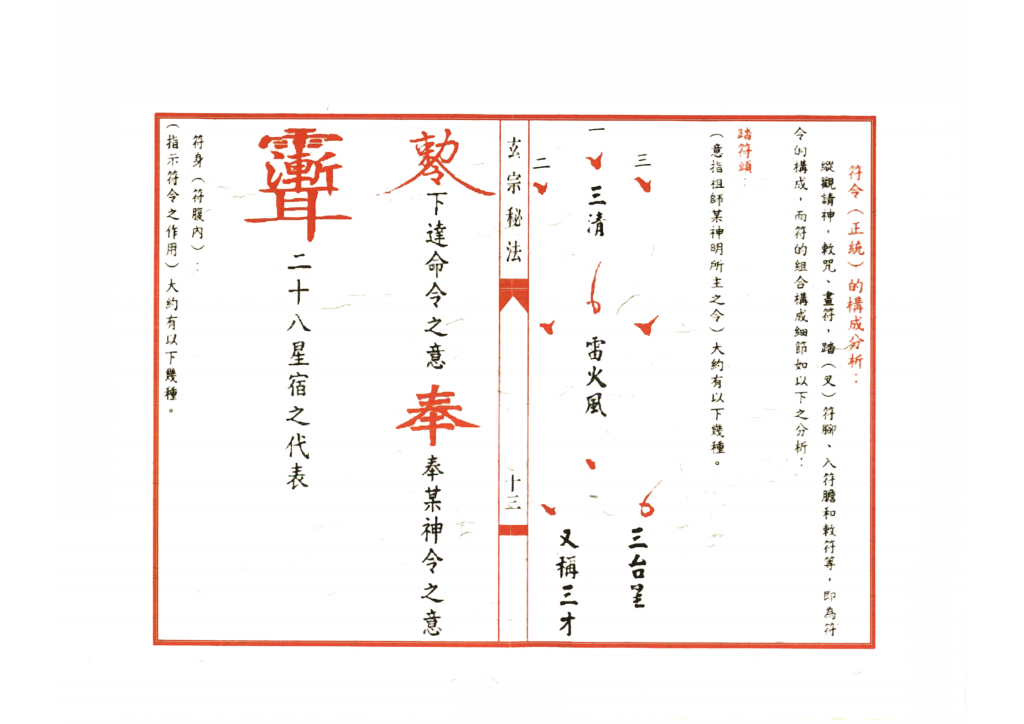 符令（正統）的構成分析：
縱觀請神，敕咒、畫符，踏（叉）符腳、入符膽和敕符等，即為符
令的構成，而符的組合構成細節如以下之分析：
踏符頭：
（意指祖師某神明所主之令）大約有以下幾種。
三
三台星
一
三清
雷火風
又稱三才
二
玄宗秘法
十三
下達命令之意
奉
奉某神令之意
二十八星宿之代表
符身（符腹內）：
（指示符令之作用）大約有以下幾種。